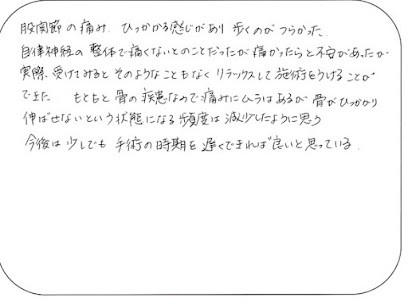 股関節の痛み ひっかかる感じがあり 歩くのが つらかった.
自律神経の整体で痛くないとのことだったが 痛かったらと不安があったが
実際、受けてみると そのようなこともなく リラックスして 施術をうけることが
できた. もともと 骨の疾患なので 痛みにムラはあるが 骨がひっかかり
伸ばせないという状態になる 頻度は 減少したように思う
今後は 少しでも 手術の時期を 遅くできれば良いと思っている.